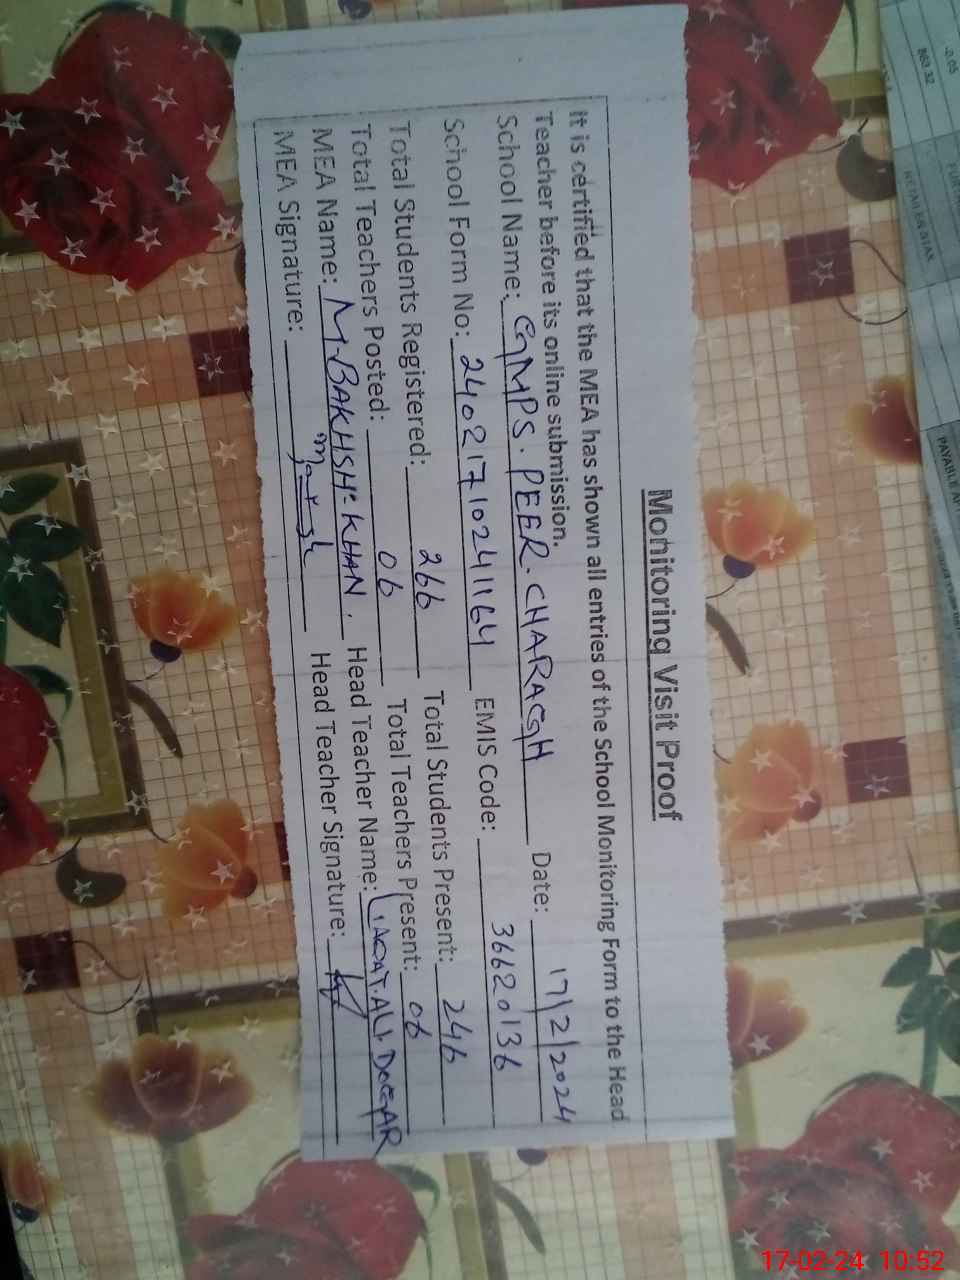 Monitoring Visit Proof
It is certified that the MEA has shown all entries of the School Monitoring Form to the Head
Teacher before its online submission.
School Name: GMPS. PEER. CHARAGH Date: 17/2/2024
School Form No: 24021710241164 EMIS Code: 36620136
Total Students Registered: 266 Total Students Present: 246
Total Teachers Posted: 06 Total Teachers Present: 06
MEA Name: M. BAKHSH. KHAN. Head Teacher Name: LIAQAT. ALI. DOGAR
MEA Signature: Head Teacher Signature:
-0.05
863.32
PAYABLE
17-02-24 10:52